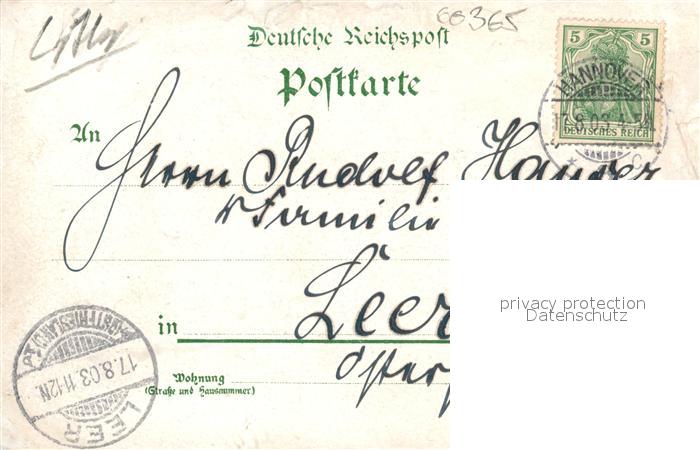 66365
Deutsche Reichspost
Postkarte
5 5
DEUTSCHES REICH
HANNOVER
17.8.03.4-5
* C
An
Herrn Rudolf
& Familie
privacy protection
Datenschutz
in Leer
Wohnung
(Straße und Hausnummer.)
LEER
17.8.03.11-12N.
(OSTFRIESLAND)